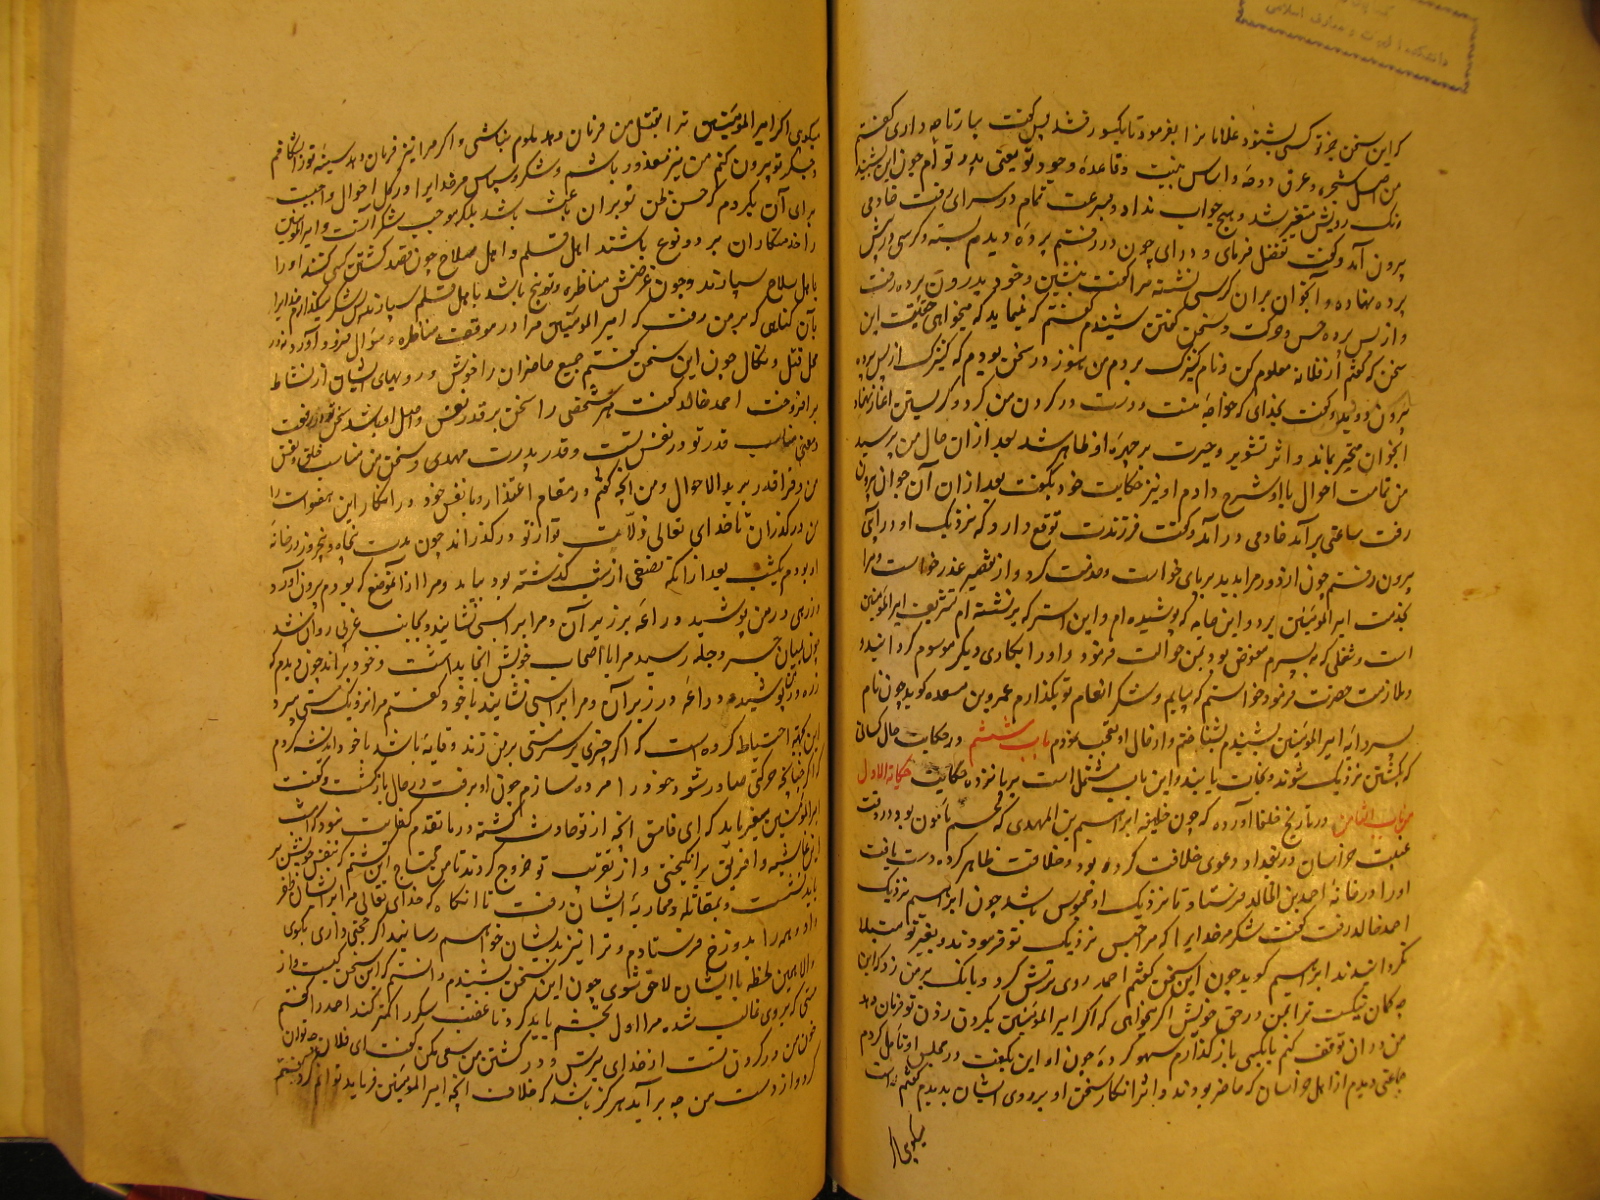 دانشکده الهیات و معارف اسلامی
کر این سخن جز تو کسی بشنود غلامانرا بفرمود تا یکسو رفتند پس گفت بیار تا چه داری گفتم
من اصل شجره و عرق دوحه و اساس بنیت و قاعده وجود تو یعنی پدر تو ام چون این بشنید
رنک رویش متغیر شد و هیچ جواب نداد و بسرعت تمام در سرای رفت خادمی
بیرون آمد و گفت تفضل فرمای و در ای چون در رفتم پرده دیدم بسته و کرسی در پیش
پرده نهاده و آنجوان بران کرسی نشسته مرا گفت بنشین و خود در پرون پرده رفت
و از پس پرده حس و حرکت و سخن گفتن شنیدم گفتم که مینماید که میخواهی حقیقت این
سخن که گفتم از فلانه معلوم کن و نام کنیزک بردم من هنوز در سخن بودم که کنیزک از پس پرده
بیرون دوید و گفت بخدای که خواجه منست و دست در گردن من کرد و گریستن آغاز نهاد
آنجوان متحیر بماند و اثر تشویر و حیرت بر چهره او ظاهر شد بعد از ان حال من پرسید
من تمامت احوال با او شرح دادم او نیز حکایت خود بگفت بعد از ان آن جوان بیرون
رفت ساعتی برآمد خادمی در آمد و گفت فرزندت توقع دارد که نزدیک او در آئی
بیرون رفتم چون از دور مرا بدید برپای خواست و خدمت کرد و از تقصیر عذر خواست و مرا
بخدمت امیر المومنین برد و این جامه که پوشیده ام و این استر که برنشسته ام تشریف امیر المومنین
است و شغلی که به پسرم مفوض بود بمن حوالت فرمود و او را بکاری دیگر موسوم گردانید و
و ملازمت حضرت فرمود خواستم که بیایم و شکر انعام تو بگذارم عمرو بن مسعده گوید چون نام
پسر دایه امیر المومنین بشنیدم بشناختم و از حال او تعجب نمودم باب ششم در حکایت حال کسانی
که بکشتن نزدیک شوند و نجات یابند و این باب مشتمل است بر پانزده حکایت حکایة الاول
من باب الثامن در تاریخ خلفا آورده که چون خلیفه ابراهیم بن المهدی که عم مامون بود در وقت
غیبت خراسان در بغداد دعوی خلافت کرده بود و خلافت ظاهر کرده دست یافت
او را در خانه احمد بن الخالد فرستاد تا نزدیک او محبوس باشد چون ابراهیم نزدیک
احمد خالد رفت گفت شکر مر خدایرا که مرا حبس نزدیک تو فرمودند و بغیر تو مبتلا
نگردانیدند ابراهیم گوید چون این سخن گفتم احمد روی ترش کرد و بانک بر من زد که این
چه گمان نیکست ترا بمن در حق خویش اگر میخواهی که اگر امیر المومنین بگردن زدن تو فرمان دهد
من در ان توقف کنم یا بکسی باز گذارم سهو کرده چون او این بگفت در مجلس او تامل کردم
جماعتی دیدم از اهل خراسان که حاضر بودند و اثر انکار سخن او بر روی ایشان بدیدم گفتم
میکوی اگر
میکوی اگر امیر المومنین ترا بقتل من فرمان دهد ملوم نباشی و اگر مرا نیز فرمان دهد سینه تو را شکافم
و جگر تو بیرون کنم من نیز معذور باشم و شکر و سپاس مر خدایرا در کل احوال واجبست
برای آن بکردم که حسن ظن تو بران باعث باشد بلکه موجب شکر آنست و امیر المومنین
را خدمتکاران بر دو نوع باشند اهل قلم و اهل سلاح چون قصد کشتن کسی کنند او را
باهل سلاح سپارند و چون غرضش مناظره و توبیخ باشد باهل قلم سپارند پس شکر میگذارم خدایرا
بآن گناهی که بر من رفت که امیر المومنین مرا در موقف مناظره و سؤال فرود آورد نه در
محل قتل و نکال چون این سخن گفتم جمیع حاضران را خوش و رویهای ایشان از نشاط
برافروخت احمد خالد گفت هر شخصی را سخن بر قدر نفس و اصل او باشد
و معنی مناسب قدر تو در نفس تست و قدر پدرت مهدی و سخن من مناسب خلق و نفس
من و قدر پدر
من درگذران تا خدای تعالی زلات تو از تو درگذراند چون مدت پنجاه و پنج روز در خانه
او بودم یکشب بعد از انکه نصفی از شب گذشته بود بیامد و مرا از آنموضع که بودم بیرون آورد و
زرهی در من پوشید و دراعه بر زبر آن و مرا بر اسبی نشاندند و بجانب غربی روان شد
چون بمیان جسر دجله رسید مرا با اصحاب خویش آنجا بداشت و خود براند چون دیدم که
زره در من پوشیده و دراعه در زبر آن و مرا بر اسبی نشانیدند با خود گفتم مرا نزدیک مستی می برد
این بجهة احتیاط کرده است که اگر چیزی از سر مستی بر من زند وقایه باشد با خود اندیشه کردم
که اگر چنانچه حرکتی صادر شود خود را مرده سازم چون او برفت در حال بازگشت و گفت
امیر المومنین میفرماید که ای فاسق آنچه از تو حادث گشته در ما تقدم کفایت نبود که
و از قرب تو خروج کردند تا من محتاج آن گشتم که بنفس خویش بر
باید نشست و بمقاتله و محاربه ایشان رفت تا آنگاه که خدای تعالی مرا بر ایشان ظفر
داد و همه را بدوزخ فرستادم و ترا نیز بدیشان خواهم رسانید اگر حجتی داری بگوی
والا همین لحظه با ایشان لاحق شوی چون این سخن بشنیدم دانستم که این سخن کیست و از
مستی که بر وی غالب شده مرا اول بخشم باید کرد تا غضب سکر را کمتر کند احمد را گفتم
خون من در گردن تست از خدای بترس و در کشتن من سعی مکن گفت ای فلان چه توان
کرد و از دست من چه برآید هرگز باشد که خلاف آنچه امیر المومنین فرماید توانم کرد گفتم